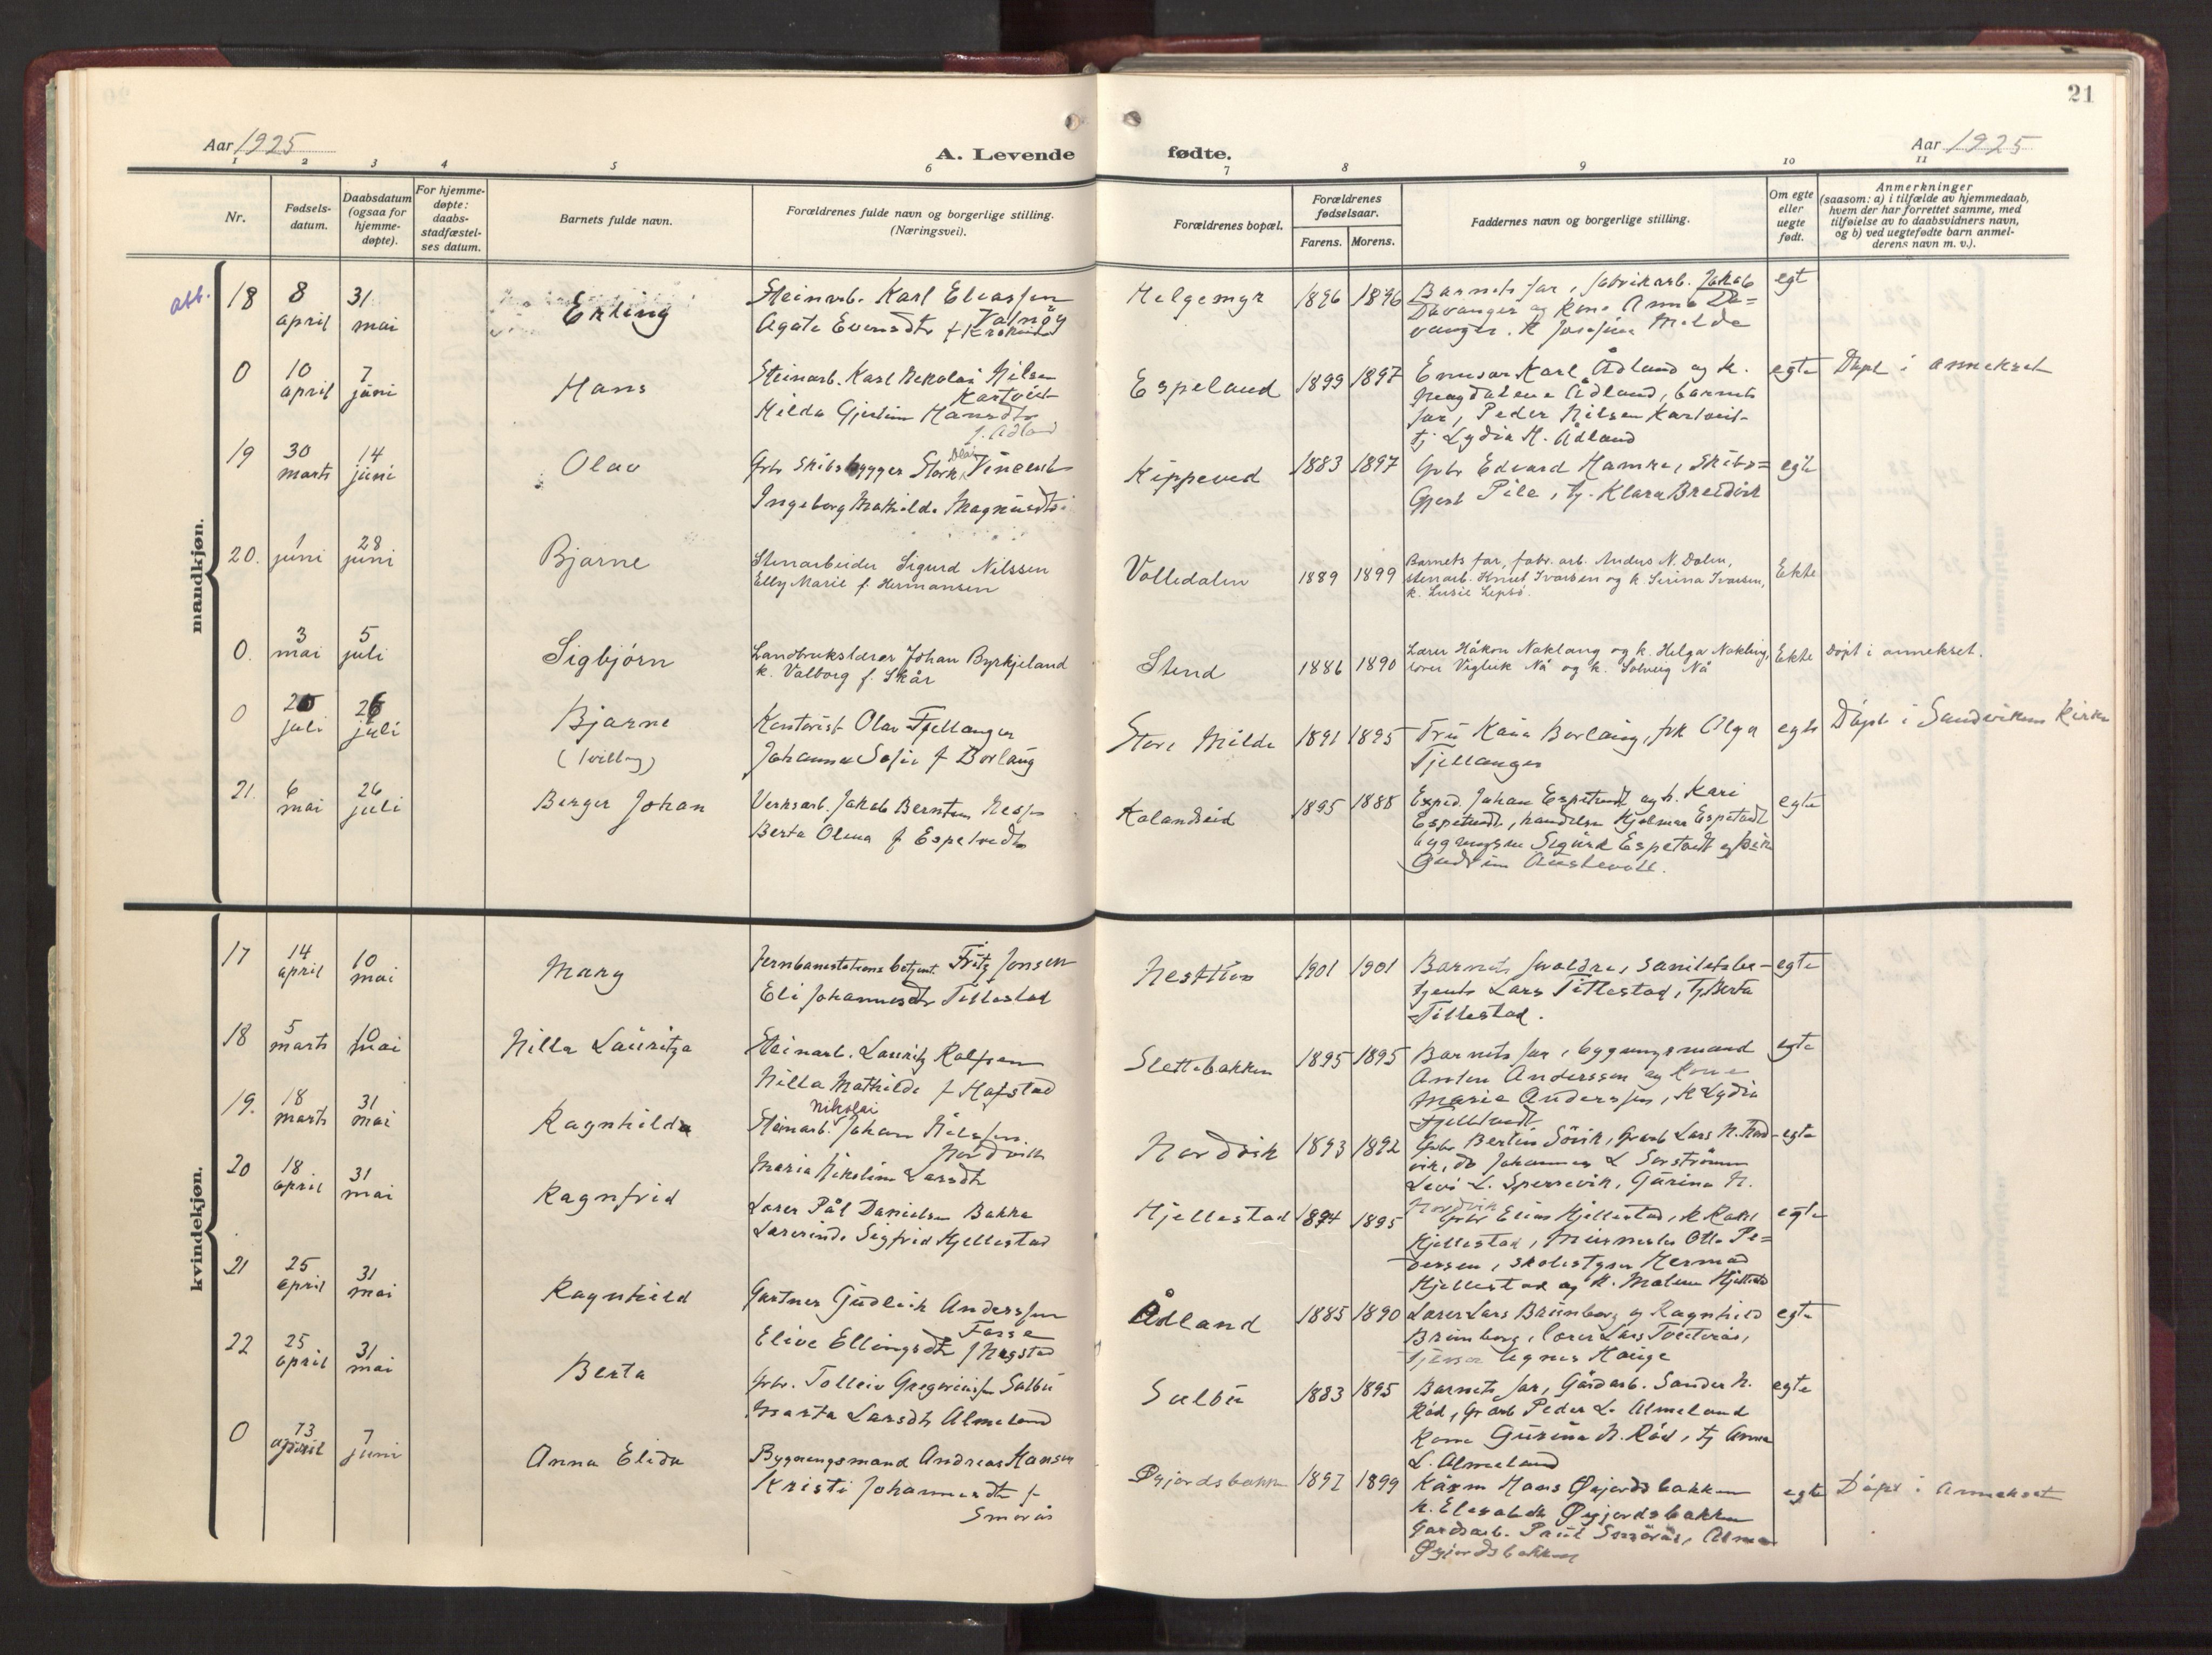 21
Aar 1925
A. Levende fødte.
Aar 1925
1 2 3 4 5 6 7 8 9 10 11
Nr.
Fødsels-
datum.
Daabsdatum
(ogsaa for
hjemme-
døpte).
For hjemme-
døpte:
daabs-
stadfæstel-
ses datum.
Barnets fulde navn.
Forældrenes fulde navn og borgerlige stilling.
(Næringsvei).
Forældrenes bopæl.
Forældrenes
fødselsaar.
Farens. Morens.
Faddernes navn og borgerlige stilling.
Om egte
eller
uegte
født.
Anmerkninger
(saasom: a) i tilfælde av hjemmedaab,
hvem der har forrettet samme, med
tilføielse av to daabsvidners navn,
og b) ved uegtefødte barn anmel-
derens navn m. v.).
mandkjøn.
18 8 april 31 mai Erling
Steinarb. Karl Eliassen
Valnøy
Agate
Helgemyr 1896 1896
Barnets far, fabrikarb. Jakob
Davanger og kone Anna Da=
vanger. K Josefine Milde
egt
0 10 april 7 juni Hans
Steinarb. Karl Nikolai Nilsen
Kartveit
Hilda Gjertine Hansdtr
f. Ådland
Espeland 1899 1897
Karl Ådland og k.
Magdalena Ådland, barnets
far, Peder Nilsen Kartveit
tj. Lydia H. Ådland
egte Døpt i annekset
19 30 marts 14 juni Olav
Grbr skibsbygger Olai Vincent
Ingeborg Mathilde Magnusdtr
Kippeved 1883 1897
Grbr Edvard Hamre, Skibs=
Pile, tj. Klara Breidvik
egte
20. 1 juni 28 juni Bjarne
Stenarbeider Sigurd Nilssen
Elly Marie f. Hermansen
Volledalen 1889 1899
Barnets far, fabr. arb. Anders N. Dalen,
stenarb. Knut Ivarsen og k. Serina Ivarsen,
k. Lusie Lepsø.
Ekte
0. 3 mai 5 juli Sigbjørn
Landbrukslærer Johan Byrkjeland
k. Valborg f. Skår
Stend 1886 1890
Lærer Håkon Nakling og k. Helga Nakling,
lærer Vigleik Nå og k. Solveig Nå
Ekte Døpt i annekset.
0 juli 26 juli Bjarne
(tvilling)
Kontorist Olav Fjellanger
Johanna Sofie f Borlaug
Store Milde 1891 1895
Fru Kaia Borlaug, frk Olga
Fjellanger
egte Døpt i Sandvikens kirke
21. 6 mai 26 juli Berger Johan
Verksarb. Jakob Berntsen
Berta Olina f Espetvedt
Kalandseid 1895 1888
Exped. Johan Espetvedt og h. Kari
Espetvedt, handelsm Hjalmar Espetvedt
bygningsm Sigurd Espetvedt og
Gudrun Austevoll.
egte
kvindekjøn.
17 14 april 10 mai Mary
Jernbanestations betjent. Fritz Jonsen
Eli Johannesdtr Tillestad
Nesttun 1901 1901
Barnets foreldre, sanitetsbe-
tjent Lars Titlestad, tj. Berta
Tillestad.
egte
18 5 marts 10 mai Nilla Lauritza
Steinarb. Lauritz Rolfsen
Nilla Mathilde f Hafstad
Slettebakken 1895 1895
Barnets far, bygningsmand
Anton Anderssen og kone
Marie Anderssen, k Lydia
Fjelltvedt
egte
19. 18 marts 31 mai Ragnhilda
Nikolai
Steinarb. Johan Nilssen
Nordvik
Maria Nikoline Larsdtr
Nordvik 1893 1892
Grbr Bertin Søvik, Grarb Lars N. Nord-
vik, do Johannes L Sørstrømmen
Levi L. Sperrevik, Gurina N.
Nordvik
egte
20 18 april 31 mai Ragnfrid
Lærer Pål Danielsen Bakke
Lærerinde Sigfrid Hjellestad
Hjellestad 1894 1895
Grbr Elias Hjellestad, k Rakel
Hjellestad, Murmester Otto Pe=
dersen, skolestyrer Hermod
Hjellestad og k. Malene Hjellestad
egte
21 25 april 31 mai Ragnhild
Gartner Gudleik Anderssen
Fosse
Elive Ellingsdtr f Mugstad
Ådland 1885 1890
Lærer Lars Brunborg og Ragnhild
Brunborg, lærer Lars Tveiterås,
Agnes Hauge
egte
22 25 april 31 mai Berta
Grbr. Tolleiv Gregoriussen Salbu
Marta Larsdtr Almeland
Salbu 1883 1895
Barnets far, Gårdarb. Sander N.
Rød, Grarb Peder L. Almeland
Kone Gurina N. Rød, tj Anna
L. Almeland
egte
0 13 april 7 juni Anna Elida
Bygningsmand Andreas Hansen
Kristi Johannesdtr f
Smørås
Øgjordsbakken 1897 1899
Kårm Hans Øgjordsbakken
k. Elisabeth Øgjordsbakken
Gardsarb. Paul Smørås, Alma
Øgjordsbakken
egte Døpt i annekset